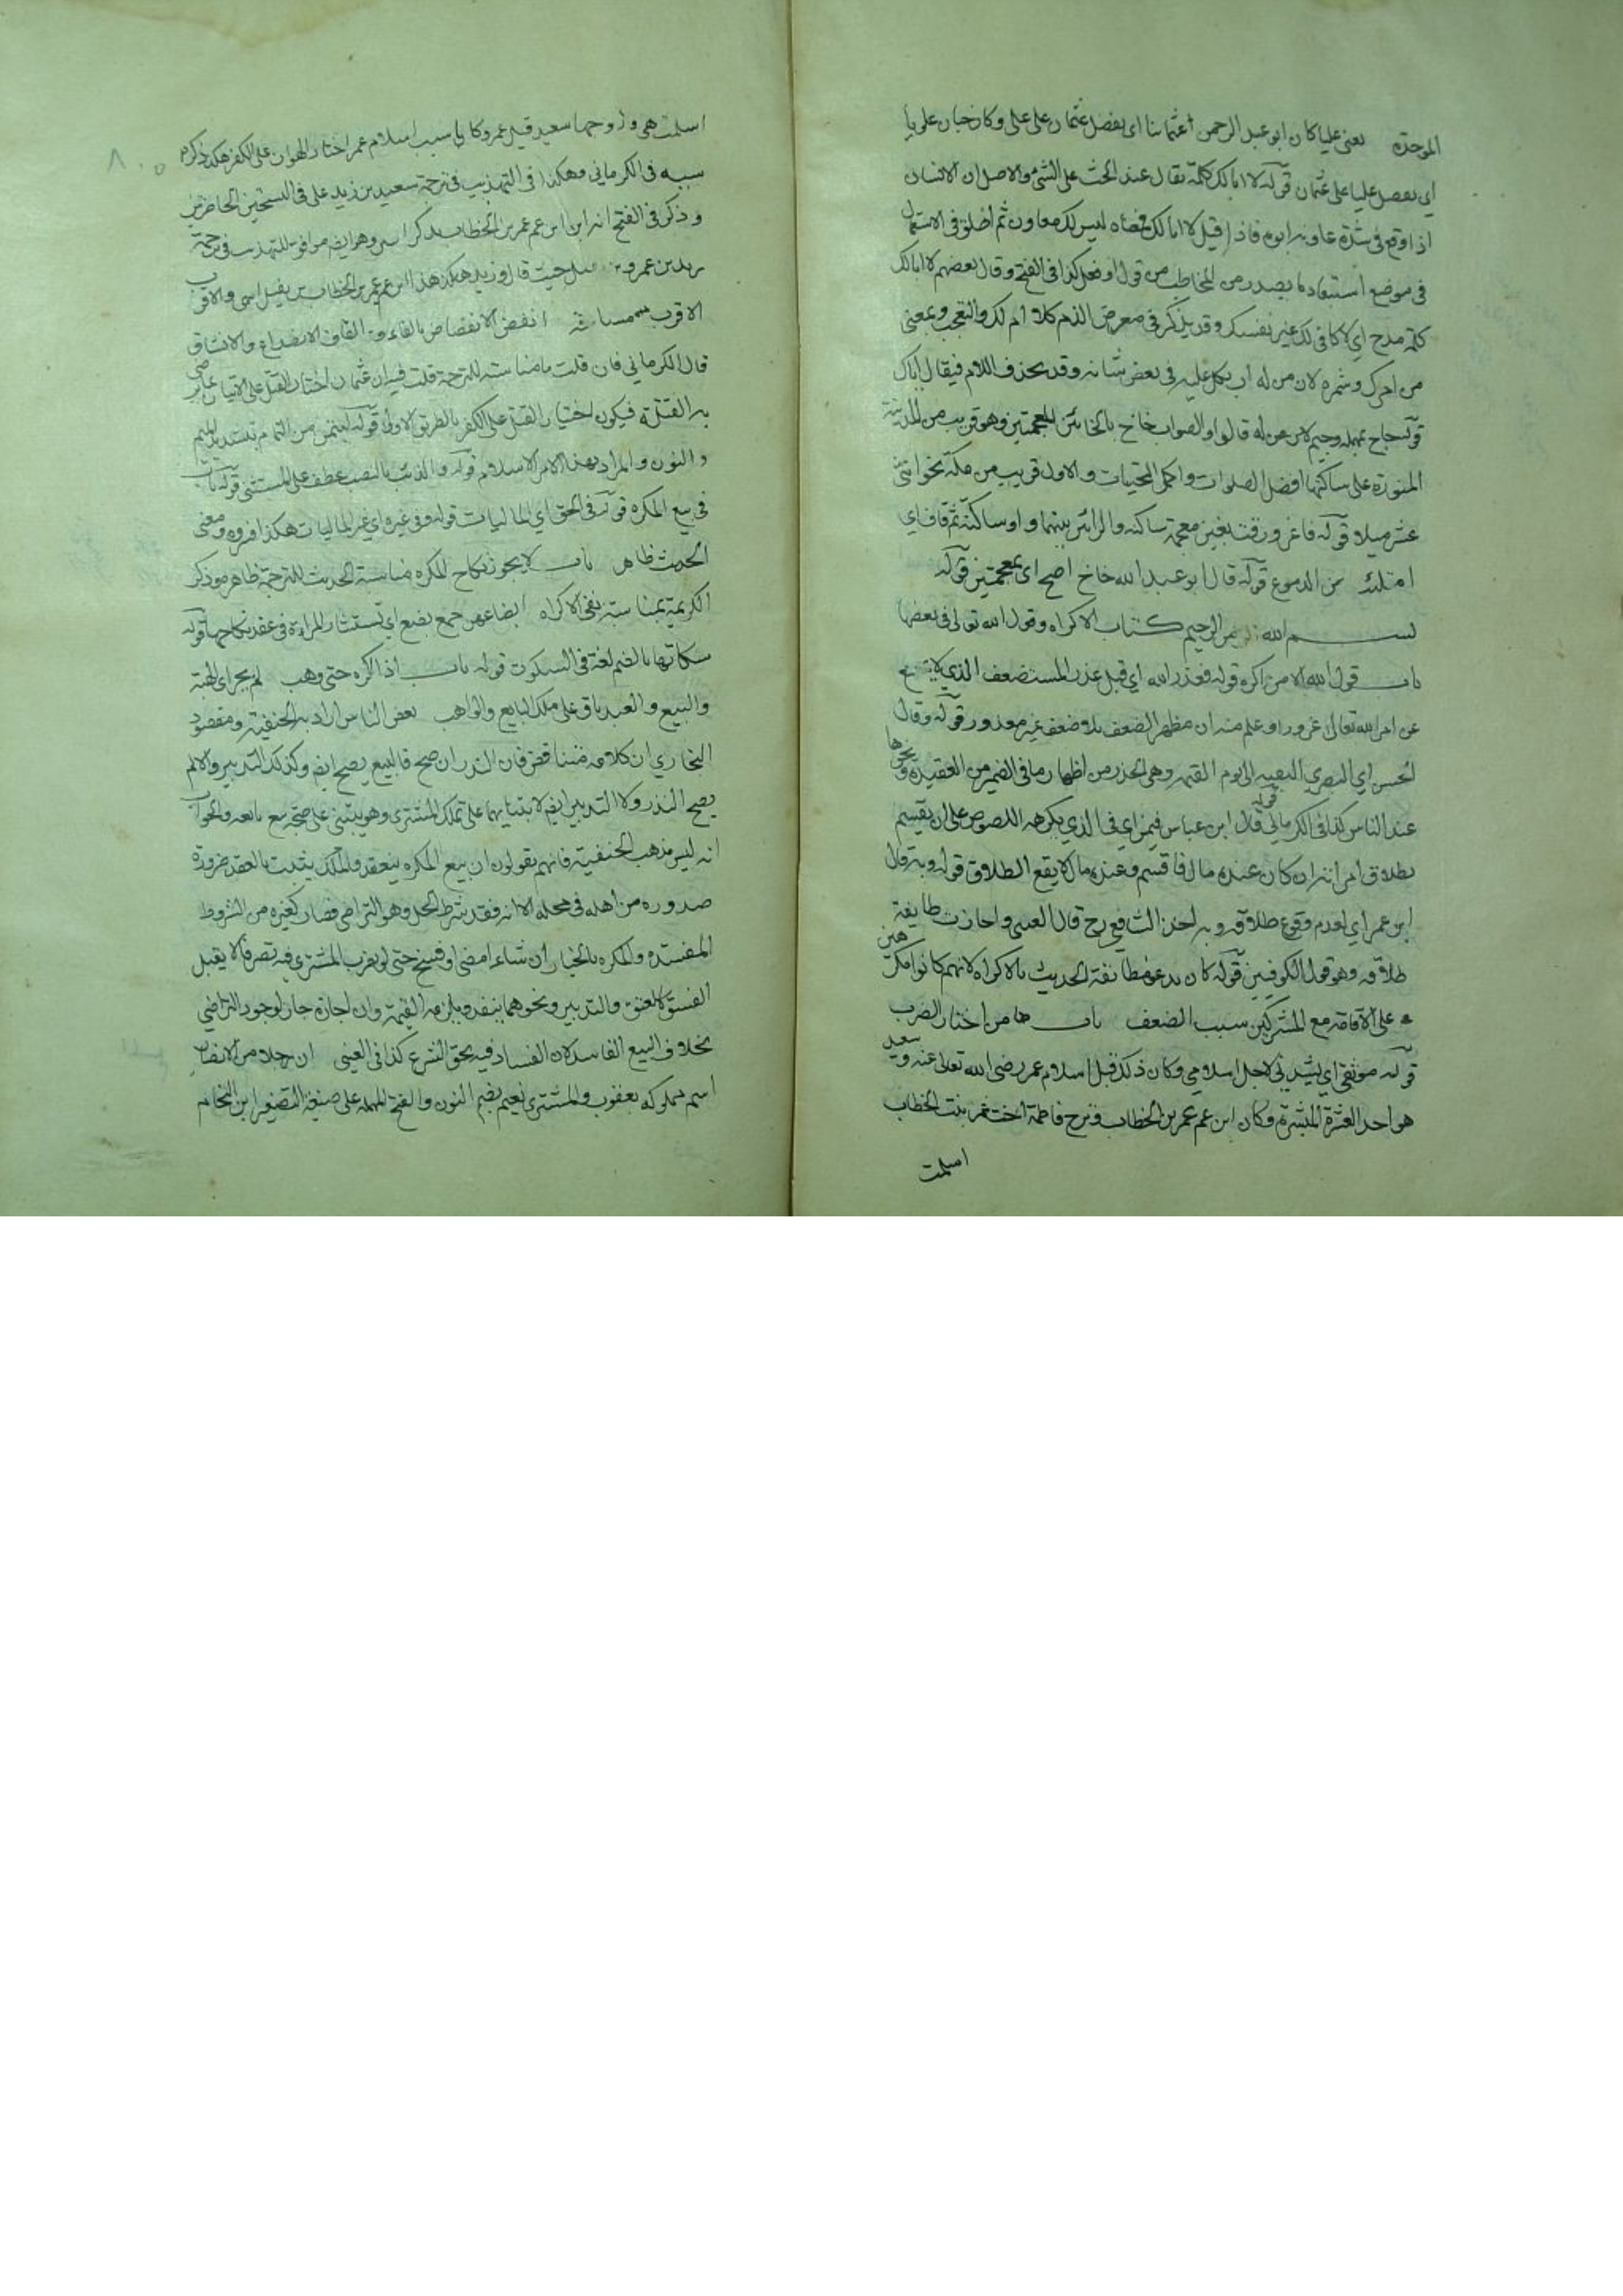 الموحدة يعنى عليا كان ابو عبد الرحمن عثمانيا اى يفضل عثمان على على وكان حبان علويا
اي يفضل عليا على عثمان قوله لا ابا لك كلمة يقال عند الحث على الشئ والاصل ان الانسان
اذا وقع فى شدة عاونه ابوه فاذا قيل لا ابا لك فمعناه ليس لك معاون ثم اطلق فى الاستعمال
فى موضع استبعاد ما يصدر من المخاطب من قول او فعل كذا فى الفتح وقال بعضهم لا ابا لك
كلمة مدح اي لا كافى لك غير نفسك وقد يذكر فى معرض الذم كلا ام لك والتعجب وبمعنى
من امرك وشمره لان من له اب يتكل عليه فى بعض شانه وقد يحذف اللام فيقال اباك
قوله حاج بمهملة وجيم قالوا والصواب خاخ بالخائين المعجمتين وهو قريب من المدينة
المنورة على ساكنها افضل الصلوات واكمل التحيات والاول قريب من مكة بنحو اثنى
عشر ميلا قوله فاغرورقت بغين معجمة ساكنه والرائين بينهما واو ساكنة ثم قاف اي
امتلئت من الدموع قوله قال ابو عبد الله خاخ اصح اى بمعجمتين قوله
بسم الله الرحمن الرحيم كتاب الاكراه وقول الله تعالى فى بعضها
باب قول الله الا من اكره قوله فعذر الله اي قبل عذر المستضعف الذي لا يمتنع
عن امر الله تعالى وعلم منه ان مظهر الضعف بلا ضعف غير معذور قوله وقال
الحسن اي البصري التقية الى يوم القيمة وهى الحذر من اظهار ما فى الضمير من العقيدة ونحوها
عند الناس كذا فى الكرماني قوله قال ابن عباس فيمن اي فى الذي يكرهه اللصوص على ان يقسم
بطلاق امراته ان كان عنده مال فاقسم وعنده مال لا يقع الطلاق قوله وبه قال
ابن عمر اي بعدم وقوع طلاقه وبه اخذ الشافعي رح قال العينى واجازت طايفة
طلاقه وهو قول الكوفيين قوله كان يدعو مطابقة الحديث بالاكراه لانهم كانوا مكرهين
على الاقامة مع المشركين سبب الضعف باب من اختار الضرب
قوله موثقى اي يشدنى لاجل اسلامي وكان ذلك قبل اسلام عمر رضى الله تعالى عنه وسعيد
هو احد العشرة المبشرة وكان ابن عم عمر بن الخطاب وزوج فاطمة اخت عمر بنت الخطاب
اسلمت
اسلمت هى وزوجها سعيد قبل عمر وكان سبب اسلام عمر اختار الهوان على الكفر هكذا ذكره
سببه فى الكرماني وهكذا فى التهذيب فى ترجمة سعيد بن زيد على فى النسختين الحاضرتين
وذكر فى الفتح انه ابن ابن عم عمر بن الخطاب بذكر ابن وهو ايضا موافق للتهذيب فى ترجمة
زيد بن عمرو بن نفيل حيث قال وزيد هكذا هذا ابن عم عمر بن الخطاب بن نفيل
الاقرب انفض الانفضاض بالفاء وبالقاف الانصداع والانشقاق
قال الكرماني فان قلت ما مناسبته للترجمة قلت فيه ان عثمان اختار القتل على الاتيان بما يرضى
به القتلة فيكون اختيار القتل على الكفر بالطريق الاولى قوله ليتمن من التمام بتشديد الميم
والنون والمراد بهذا الامر الاسلام قوله والذئب بالنصب عطف على المستثنى قوله باب
فى بيع المكره قوله فى الحق اي الماليات قوله وفى غيره اي غير الماليات هكذا قرره ومعنى
الحديث ظاهر باب لا يجوز نكاح المكره مناسبة الحديث للترجمة ظاهر وذكر
الكريمة بمناسبة نفى الاكراه ابضاعهن جمع بضع اي تستشار المراة فى عقد نكاحها قوله
سكاتها بالضم لغة فى السكوت قوله باب اذا اكره حتى وهب لم يجز اى الهبة
والبيع والعبد باق على ملك البايع والواهب بعض الناس اراد به الحنفية ومقصود
البخاري ان كلامه متناقض فان النذر ان صح فالبيع يصح ايضا وكذلك التدبير والا لم
يصح النذر ولا التدبير ايضا لابتنائهما على تملك المشتري وهو يبتنى على صحة بيع بائعه والجواب
انه ليس مذهب الحنفية فانهم يقولون ان بيع المكره ينعقد والملك يثبت بالعقد ضرورة
صدوره من اهله فى محله الا انه فقد شرط الحل وهو التراضى فصار كغيره من الشروط
المفسده والمكره بالخيار ان شاء امضى او فسخ حتى لو تصرف المشتري فيه تصرفا لا يقبل
الفسخ كالعتق والتدبير ونحوهما ينفذ ويلزمه القيمة وان اجازه جاز لوجود التراضي
بخلاف البيع الفاسد لان الفساد فيه بحق الشرع كذا فى العينى ان رجلا من الانصار
اسم مملوكه يعقوب والمشتري نعيم بضم النون والفتح المهملة على صيغة التصغير ابن النحام